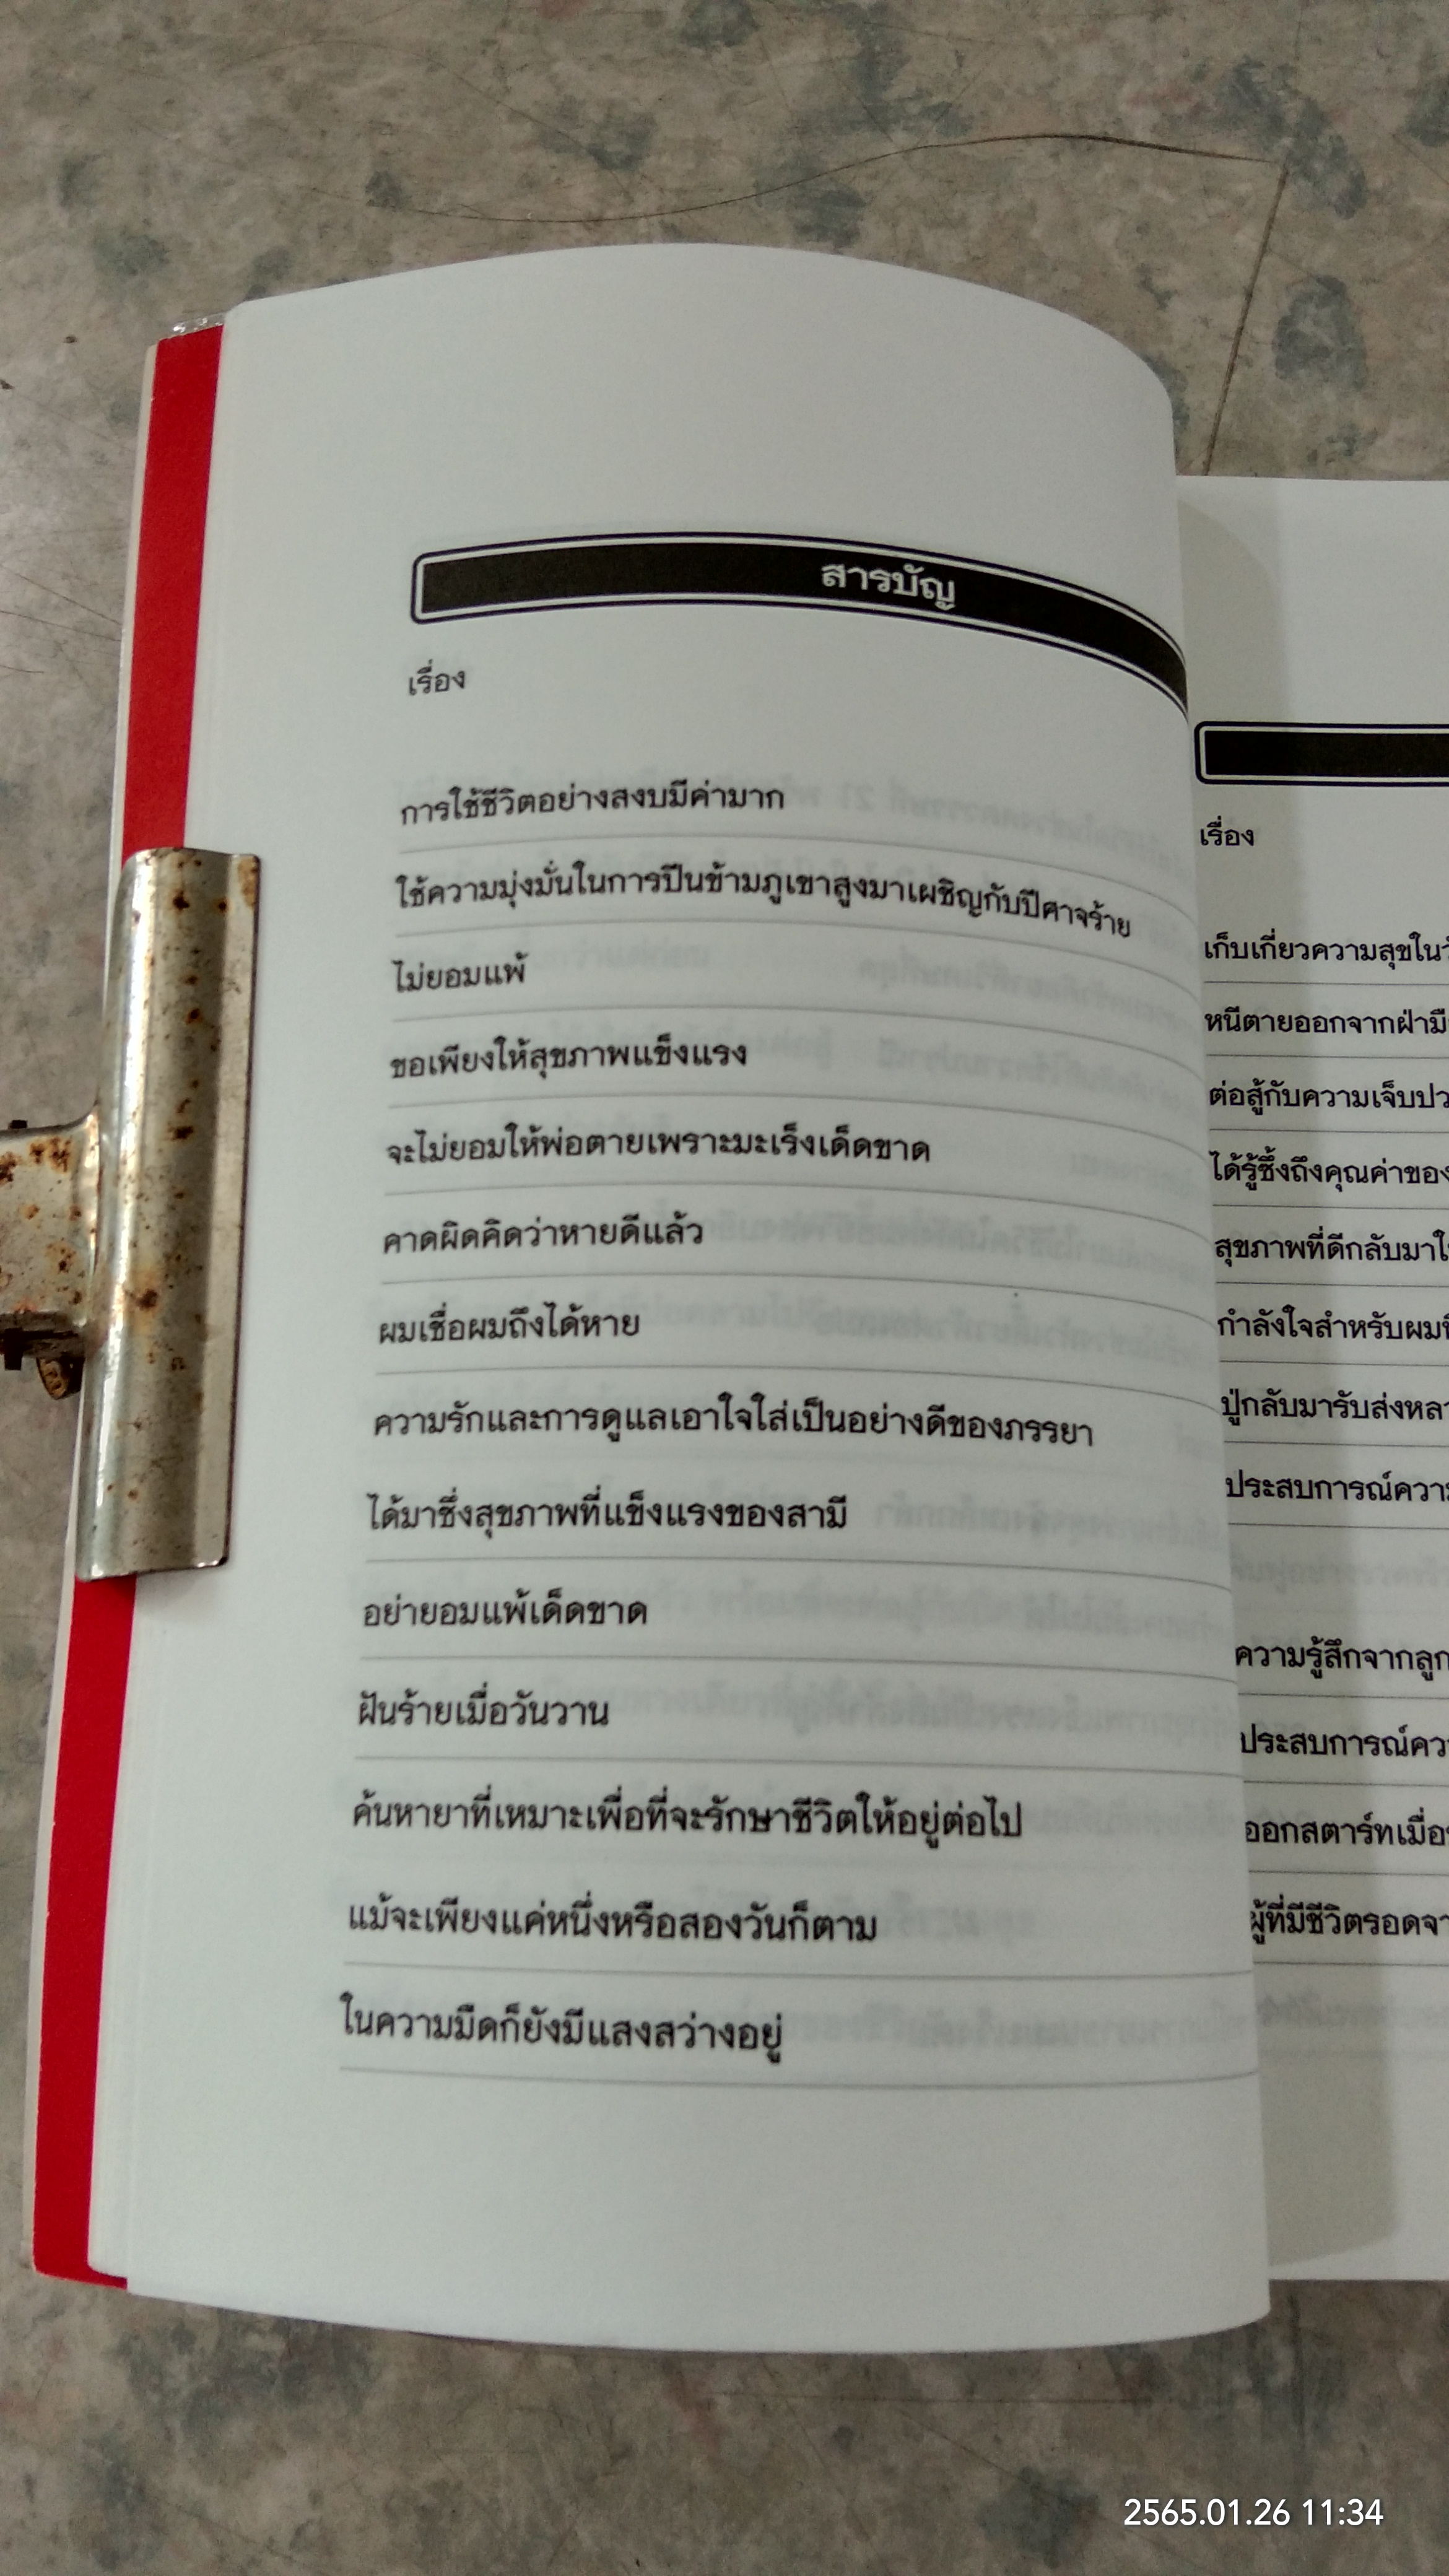 สารบัญ
เรื่อง
การใช้ชีวิตอย่างสงบมีค่ามาก
ใช้ความมุ่งมั่นในการปีนข้ามภูเขาสูงมาเผชิญกับปีศาจร้าย
ไม่ยอมแพ้
ขอเพียงให้สุขภาพแข็งแรง
จะไม่ยอมให้พ่อตายเพราะมะเร็งเด็ดขาด
คาดผิดคิดว่าหายดีแล้ว
ผมเชื่อผมถึงได้หาย
ความรักและการดูแลเอาใจใส่เป็นอย่างดีของภรรยา
ได้มาซึ่งสุขภาพที่แข็งแรงของสามี
อย่ายอมแพ้เด็ดขาด
ฝันร้ายเมื่อวันวาน
ค้นหายาที่เหมาะเพื่อที่จะรักษาชีวิตให้อยู่ต่อไป
แม้จะเพียงแค่หนึ่งหรือสองวันก็ตาม
ในความมืดก็ยังมีแสงสว่างอยู่
เรื่อง
เก็บเกี่ยวความสุขใน
หนีตายออกจากฝ่ามื
ต่อสู้กับความเจ็บปว
ได้รู้ซึ้งถึงคุณค่าของ
สุขภาพที่ดีกลับมา
กำลังใจสำหรับผม
ปู่กลับมารับส่งหล
ประสบการณ์ควา
ความรู้สึกจากลูก
ประสบการณ์คว
ออกสตาร์ทเมื่อ
ผู้ที่มีชีวิตรอดจา
2565.01.26 11:34